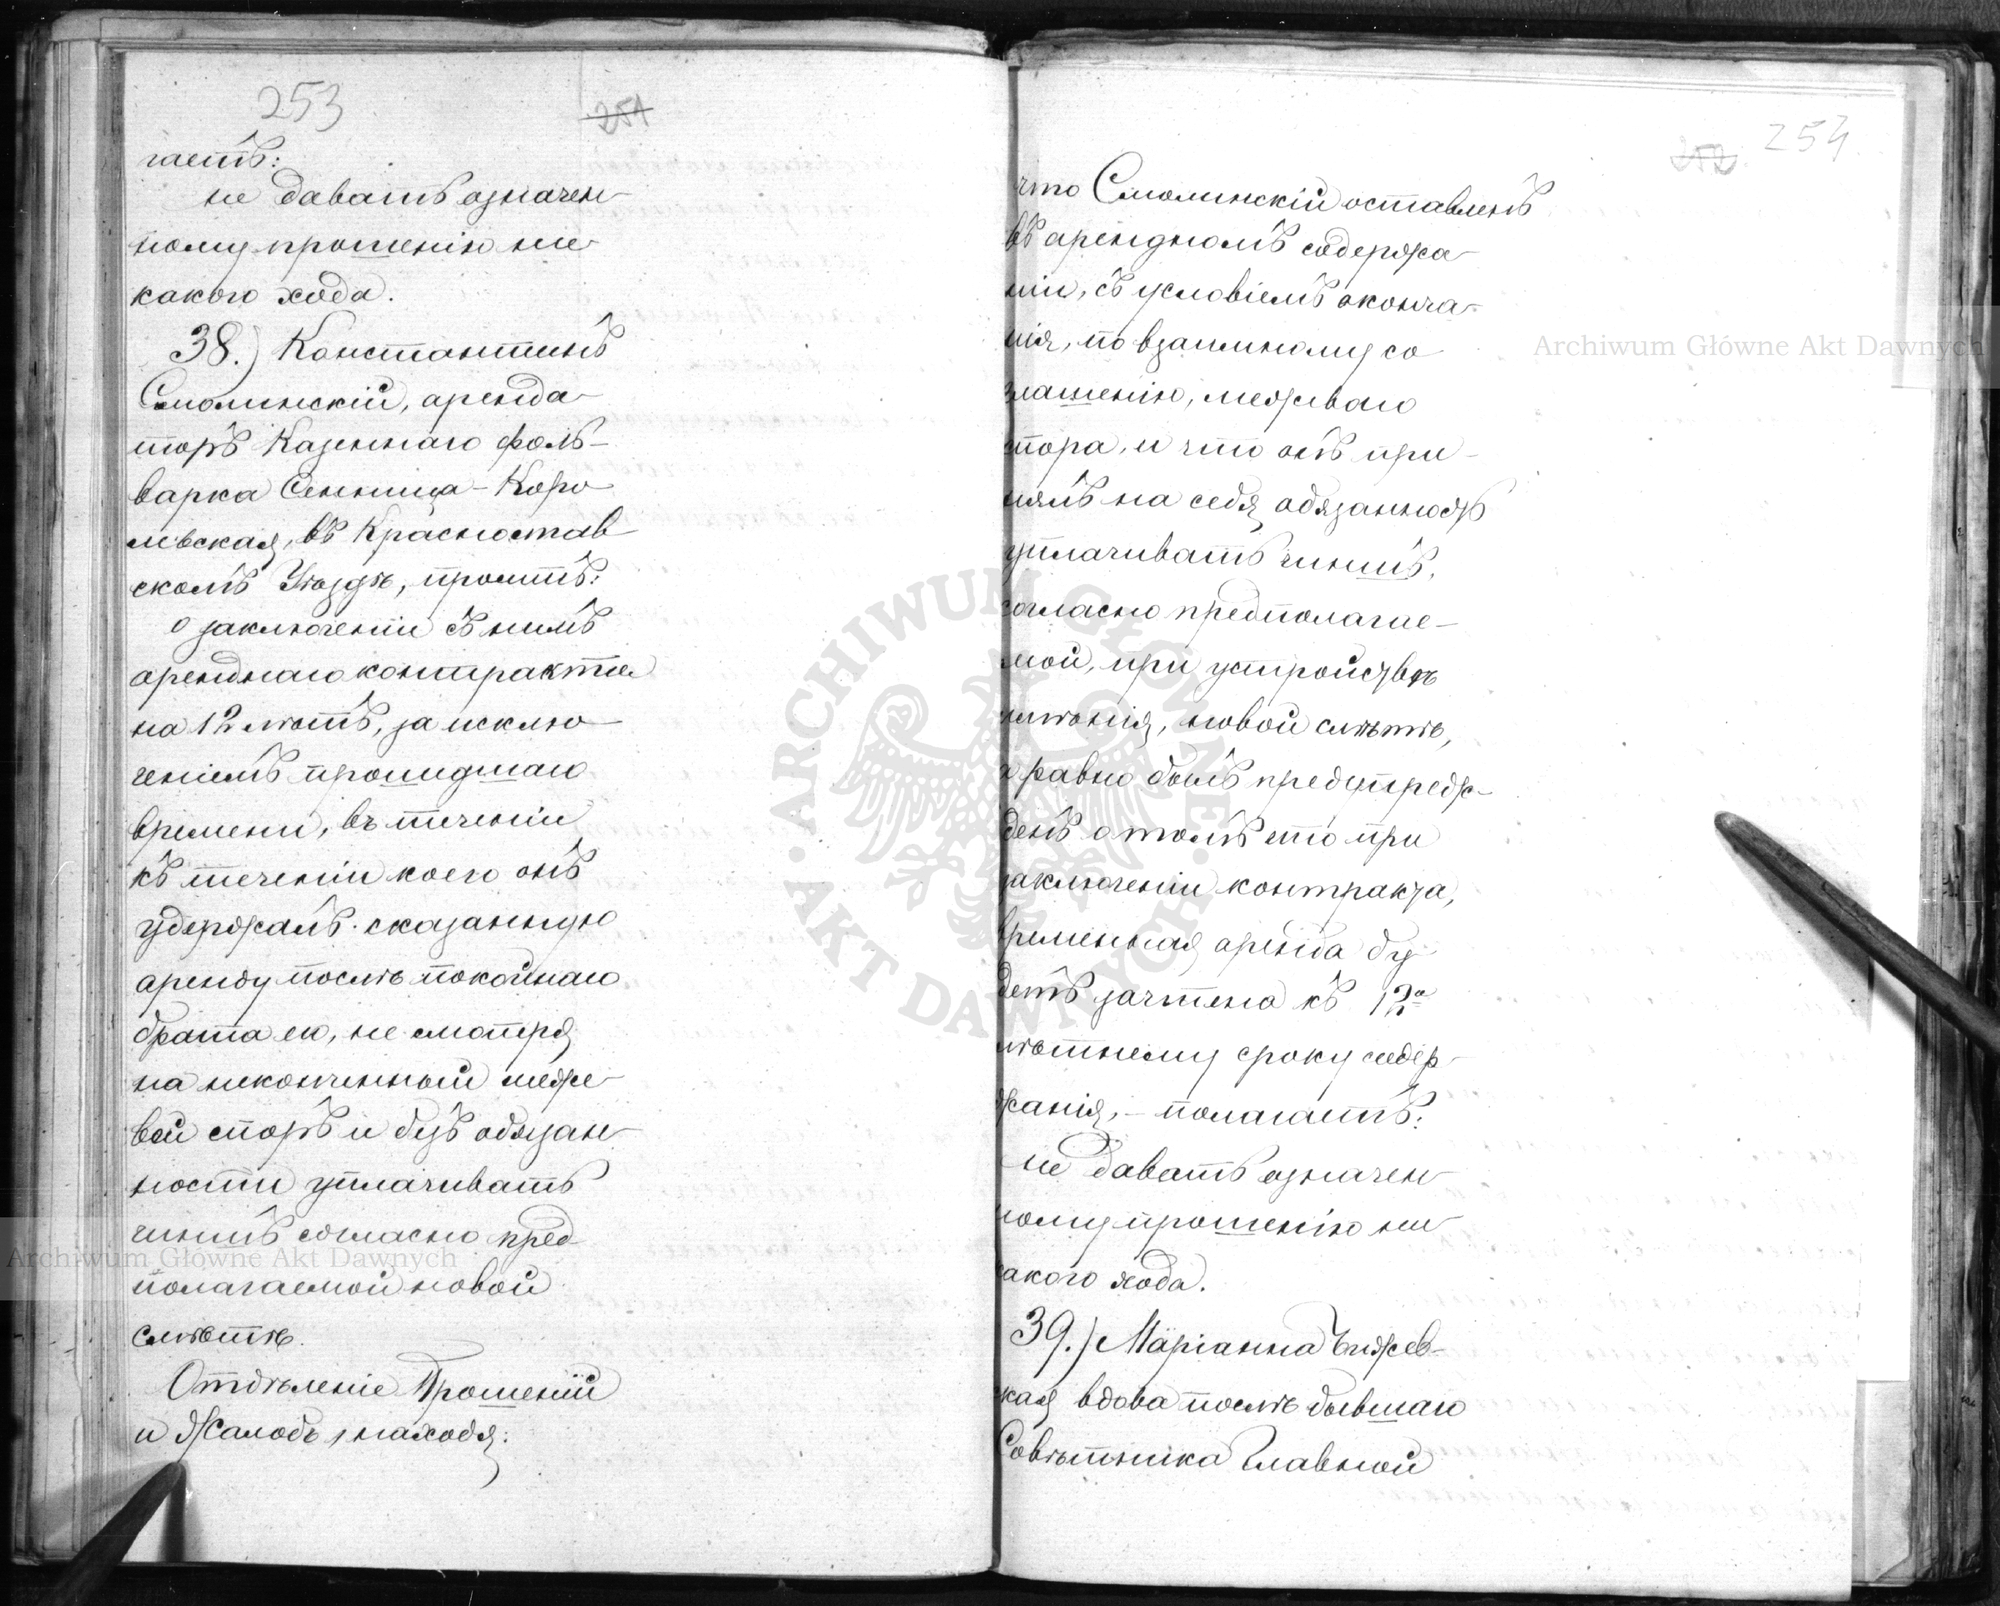 253
251
гаетъ:
не давать означен-
ному прошенію ни-
какого хода.
38.) Константинъ
Смолинскій, аренда-
торъ Казеннаго фоль-
варка Сенница-Коро-
левская, въ Красностав-
скомъ Уѣздѣ, проситъ:
о заключеніи съ нимъ
аренднаго контракта
на 12 лѣтъ, за исклю-
ченіемъ прошедшаго
времени, въ теченіи
къ теченіи коего онъ
удержалъ сказанную
аренду послѣ покойнаго
брата ею, не смотря
на неконченный меже-
вой споръ и безъ обязан-
ности уплачивать
чиншъ согласно пред-
полагаемой новой
смѣтѣ.
Отдѣленіе Прошеній
и Жалобъ, находя:
252
254
что Смолинскій оставленъ
въ арендномъ содержа-
ніи, съ условіемъ оконча-
нія, по взаимному со
глашенію, межеваго
спора, и что онъ при-
нялъ на себя обязанность
уплачивать чиншъ,
согласно предполагае-
мой, при устройствѣ
имѣнія, новой смѣтѣ,
а равно былъ предупреж-
денъ о томъ что при
заключеніи контракта,
временная аренда бу-
детъ зачтена къ 12и
лѣтнему сроку содер-
жанія, - полагаетъ:
не давать означен-
ному прошенію ни-
какого хода.
39.) Маріанна
вдова послѣ бывшаго
Совѣтника Главной
Archiwum Główne Akt Dawnych
Archiwum Główne Akt Dawnych
ARCHIWUM GŁÓWNE · AKT DAWNYCH ·